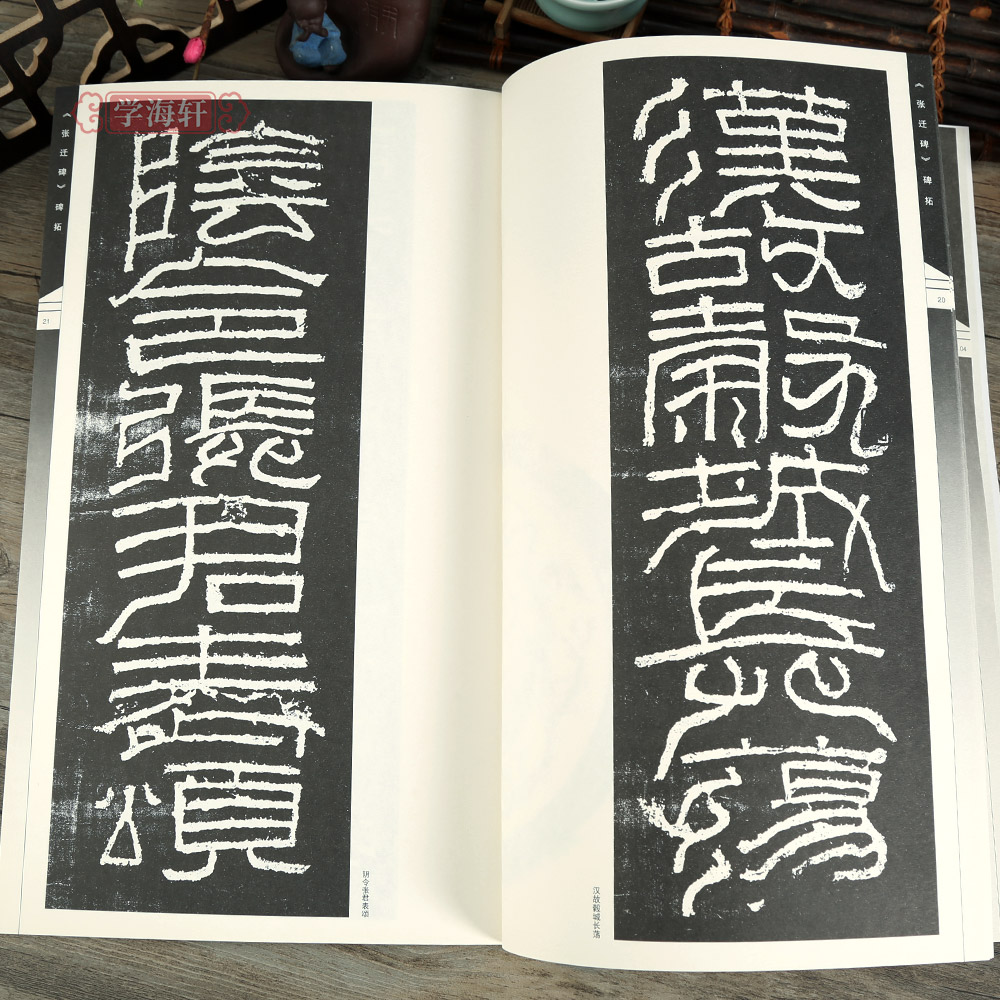 漢故穀城長蕩
汉故毂城长荡
《张迁碑》碑拓
20
04
陰令張君表頌
阴令张君表颂
《张迁碑》碑拓
21
学海轩